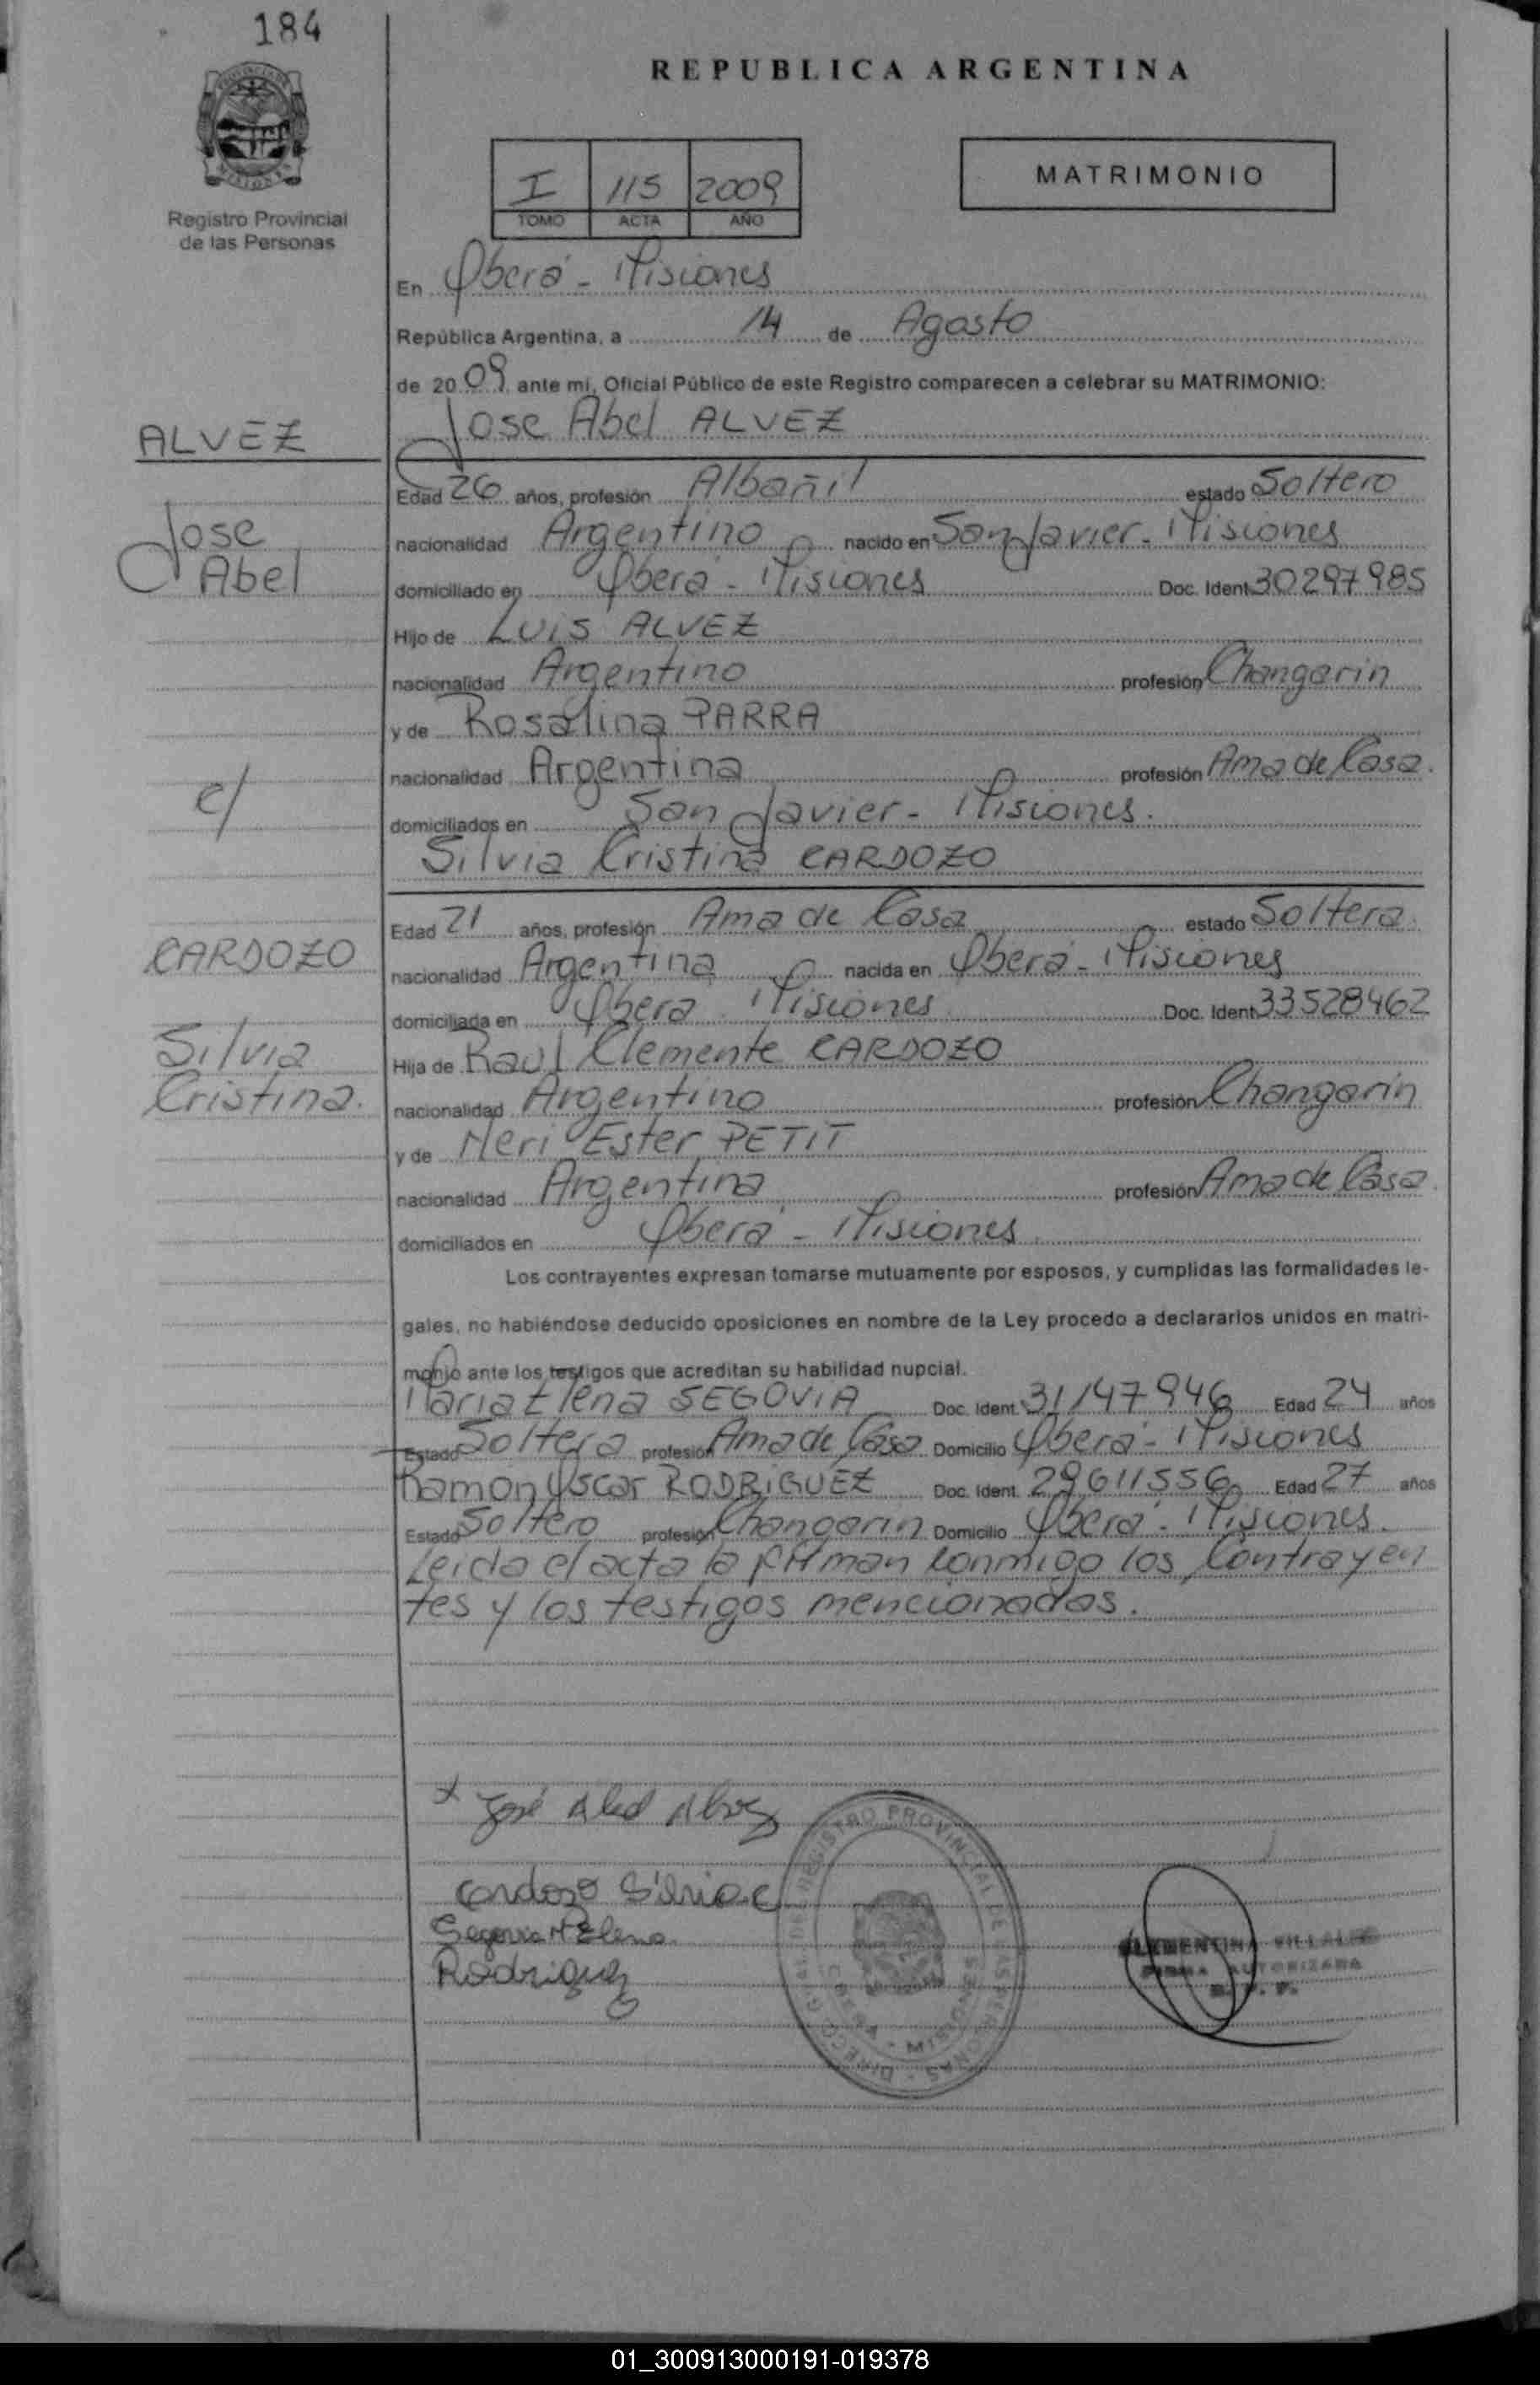 184
REPUBLICA ARGENTINA
PROVINCIA DE
MISIONES
Registro Provincial
de las Personas
I 115 2009
TOMO ACTA AÑO
MATRIMONIO
En Oberá - Misiones
República Argentina, a 14 de Agosto
de 2009 ante mi, Oficial Público de este Registro comparecen a celebrar su MATRIMONIO:
ALVEZ
Jose
Abel
c/
CARDOZO
Silvia
Cristina.
Jose Abel ALVEZ
Edad 26 años, profesión Albañil estado Soltero
nacionalidad Argentino nacido en San Javier - Misiones
domiciliado en Oberá - Misiones Doc. Ident 30297985
Hijo de Luis ALVEZ
nacionalidad Argentino profesión Changarin
y de Rosalina PARRA
nacionalidad Argentina profesión Ama de Casa.
domiciliados en San Javier - Misiones.
Silvia Cristina CARDOZO
Edad 21 años, profesión Ama de Casa estado Soltera.
nacionalidad Argentina nacida en Oberá - Misiones
domiciliada en Oberá Misiones Doc. Ident 33528462
Hija de Raul Clemente CARDOZO
nacionalidad Argentino profesión Changarin
y de Neri Ester PETIT
nacionalidad Argentina profesión Ama de Casa.
domiciliados en Oberá - Misiones.
Los contrayentes expresan tomarse mutuamente por esposos, y cumplidas las formalidades le-
gales, no habiéndose deducido oposiciones en nombre de la Ley procedo a declararlos unidos en matri-
monio ante los testigos que acreditan su habilidad nupcial.
Maria Elena SEGOVIA Doc. Ident. 31147946 Edad 24 años
Estado Soltera profesión Ama de Casa Domicilio Oberá - Misiones
Ramon Oscar RODRIGUEZ Doc. Ident. 29611556 Edad 27 años
Estado Soltero profesión Changarin Domicilio Oberá - Misiones.
Leida el acta la firman conmigo los Contrayen
tes y los testigos mencionados.
x José Abel Alvez
Cardozo Silvia C
Segovia M Elena
Rodriguez
REGISTRO PROVINCIAL DE LAS PERSONAS
MISIONES
CLEMENTINA VILLALBA
FIRMA AUTORIZADA
01_300913000191-019378